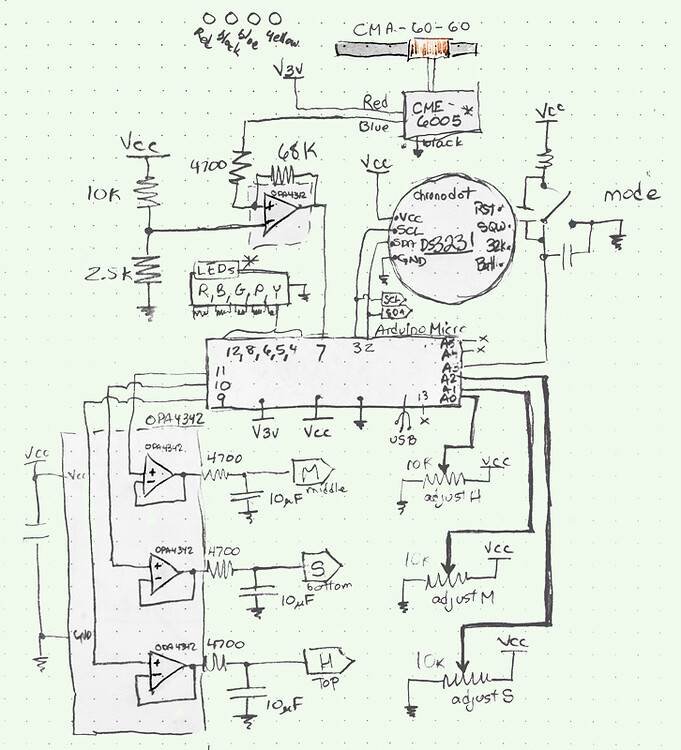 CMA-60-60
Yellow
V3v
Red
CME-6005 *
Blue
black
Vcc
Vcc
68K
4700
Vcc
10K
OPA4342
chronodot
mode
VCC
Rst
SCL
SQW
SDA
DS3231
32k
GND
Batt
2.5K
LEDs *
R, B, G, P, Y
SCL
SDA
Arduino Micro
12,8,6,5,4
7
3 2
A5
x
A4
x
A3
A2
A1
A0
11
10
9
13
x
V3v
Vcc
USB
OPA4342
Vcc
Vcc
OPA4342
4700
M
middle
10µF
10K
Vcc
adjust H
OPA4342
4700
S
bottom
10µF
10K
Vcc
adjust M
GND
OPA4342
4700
H
Top
10µF
10K
Vcc
adjust S